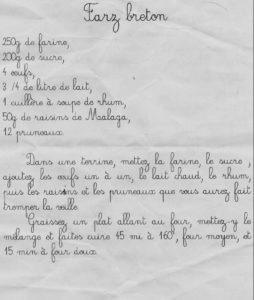 Farz breton
250g de farine,
200g de sucre,
4 œufs,
3/4 de litre de lait,
1 cuillère à soupe de rhum,
50g de raisins de Malaga,
12 pruneaux
Dans une terrine, mettez la farine, le sucre,
ajoutez les œufs un à un, le lait chaud, le rhum,
puis les raisins et les pruneaux que vous aurez fait
tremper la veille
Graissez un plat allant au four, mettez-y le
mélange et faites cuire 45 mi à 160°, four moyen, et
15 min à four doux